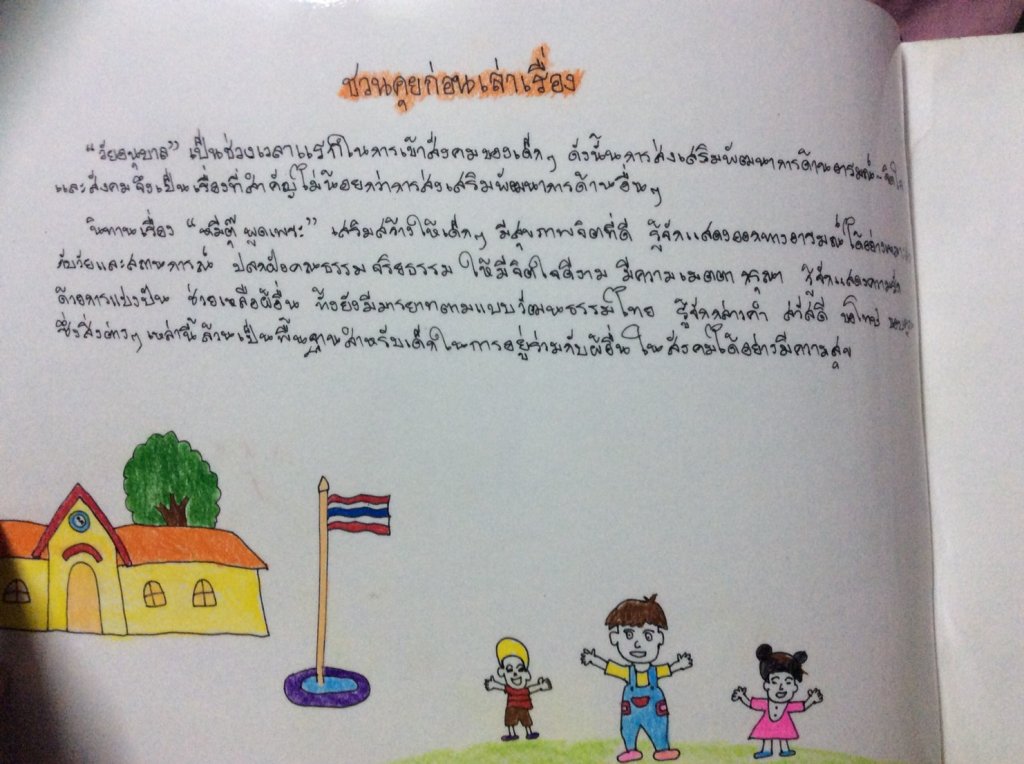 ชวนคุยก่อนเล่าเรื่อง
“วัยอนุบาล” เป็นช่วงเวลาแรกในการเข้าสังคมของเด็กๆ ดังนั้นการส่งเสริมพัฒนาการด้านอารมณ์-จิตใจ
และสังคมจึงเป็นเรื่องที่สำคัญไม่น้อยกว่าการส่งเสริมพัฒนาการด้านอื่นๆ
นิทานเรื่อง “หมีตุ๊ พูดเพราะ” เสริมสร้างให้เด็กๆ มีสุขภาพจิตที่ดี รู้จักแสดงออกทางอารมณ์ได้อย่าง
กับวัยและสถานการณ์ ปลูกฝังคุณธรรม จริยธรรม ให้มีจิตใจดีงาม มีความเมตตา กรุณา รู้จักแสดงความรัก
ด้วยการแบ่งปัน ช่วยเหลือผู้อื่น ทั้งยังมีมารยาทตามแบบวัฒนธรรมไทย รู้จักกล่าวคำ สวัสดี ขอโทษ ขอบคุณ
ซึ่งสิ่งต่างๆ เหล่านี้ล้วนเป็นพื้นฐานสำหรับเด็กในการอยู่ร่วมกับผู้อื่น ในสังคมได้อย่างมีความสุข